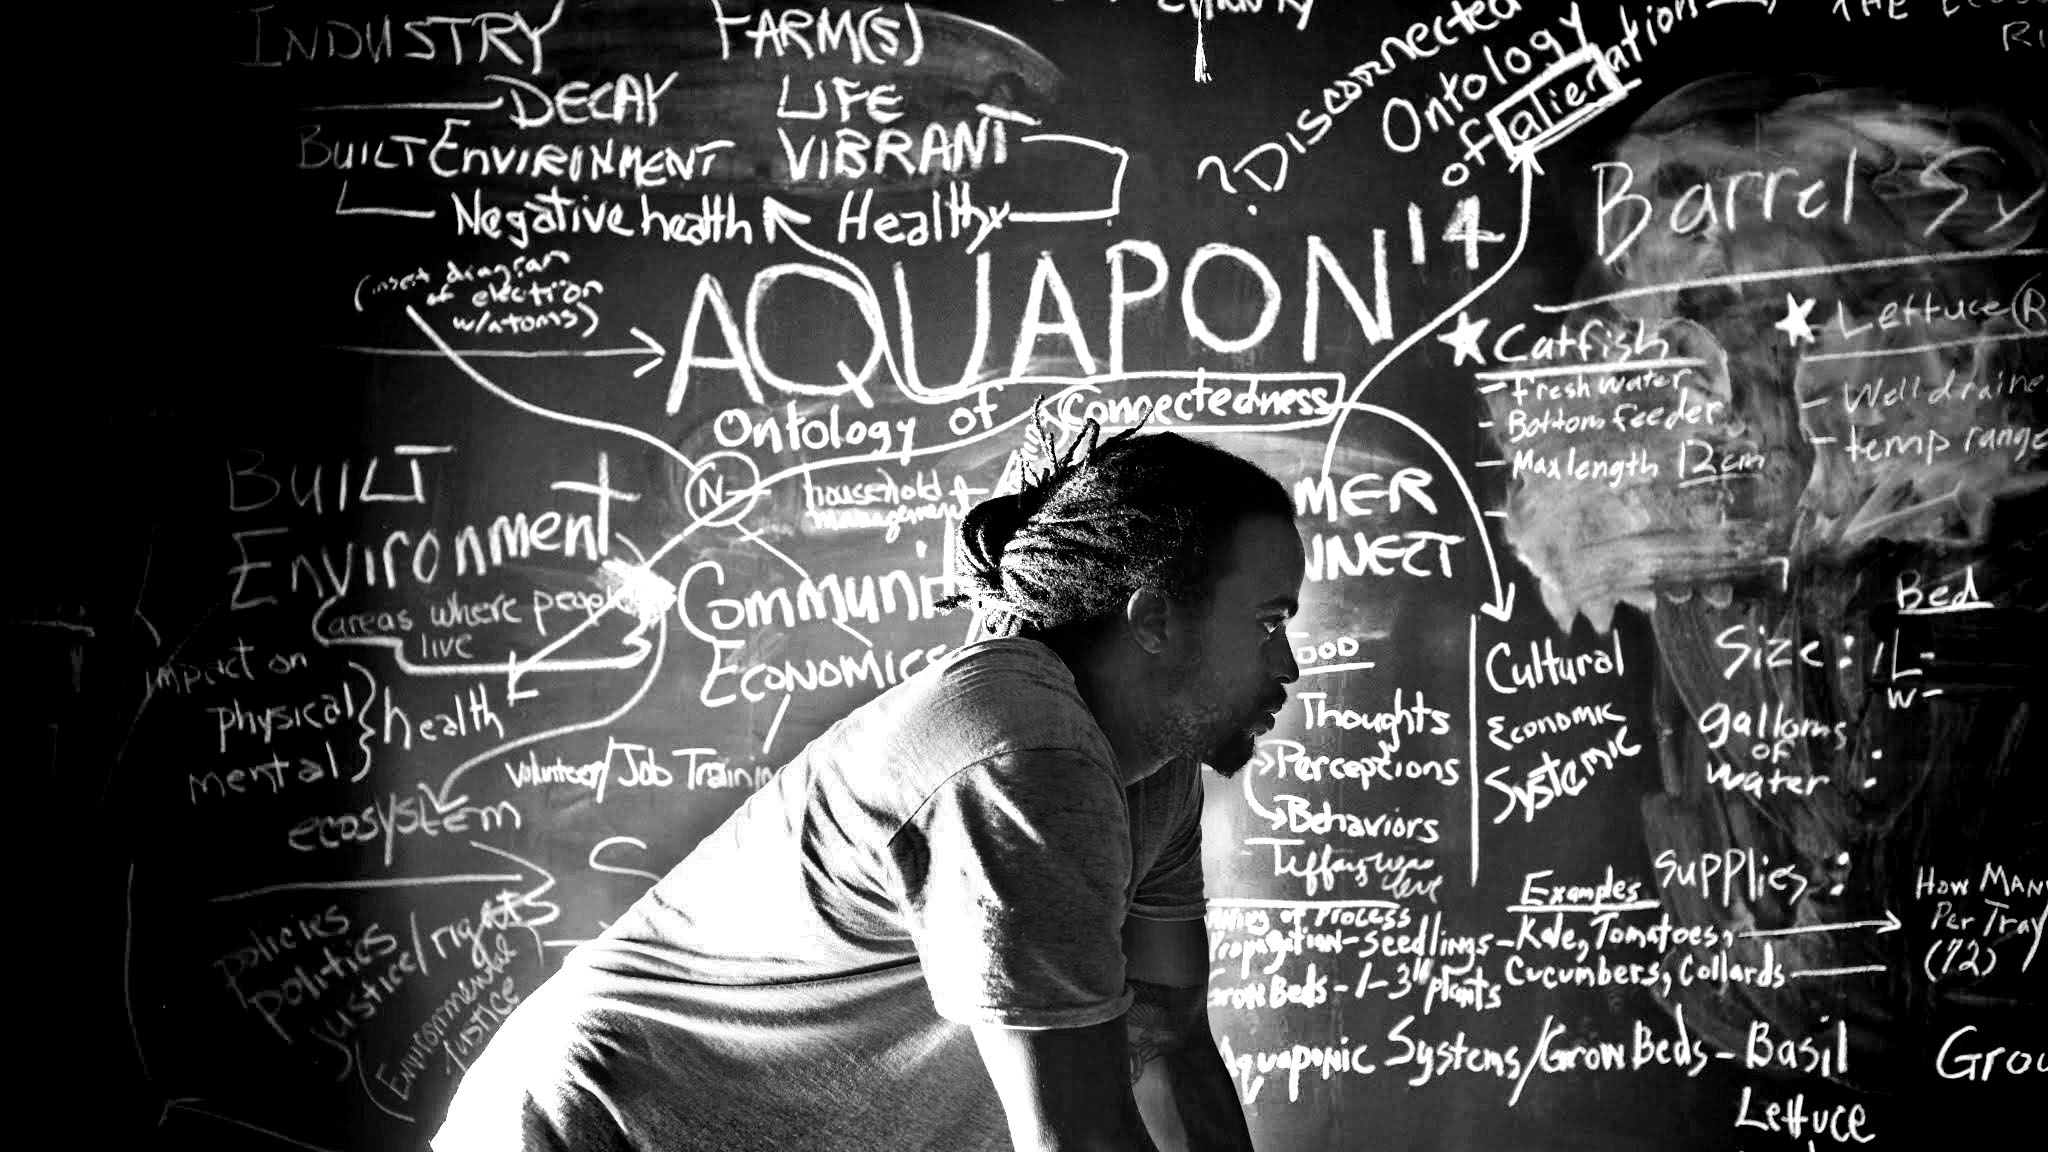 INDUSTRY FARM(S)
DECAY LIFE
BUILT ENVIRONMENT VIBRANT
Negative health Healthy
(insert diagram
of election
w/atoms)
?Disconnected
Ontology
of alienation
THE
AQUAPON'14
Ontology of Connectedness
N-
household
management
BUILT
Environment
(areas where people
live
impact on
physical
mental
health
ecosystem
policies
politics
justice/rights
Environmental
Justice
Communi
ECONOMICS
Volunteer/Job Trainin
MER
NNECT
OOD
Thoughts
Perceptions
Behaviors
Tiffany was
here
Cultural
Economic
Systemic
Barrel Sy
Catfish
- fresh water
- Bottom feeder
- Max length 12cm
Lettuce (R
- Well draine
- temp range
Bed
Size: L-
W-
gallons
of
water :
Supplies:
of Process
Propagation-Seedlings-Kale, Tomatoes,
Examples
Cucumbers, Collards
Grow Beds - 1-3" plants
HOW MAN
Per Tray
(72)
Aquaponic Systems/Grow Beds - Basil
Lettuce
Grou